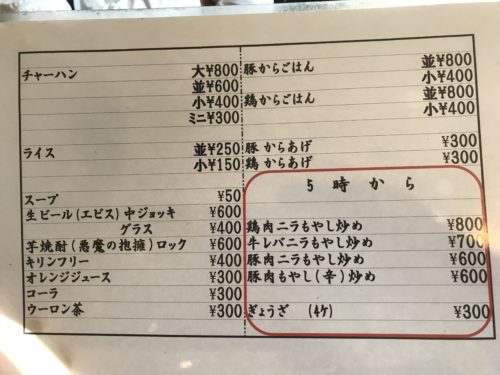 チャーハン 大¥800
並¥600
小¥400
ミニ¥300
ライス 並¥250
小¥150
スープ ¥50
生ビール(エビス)中ジョッキ ¥600
グラス ¥400
芋焼酎(悪魔の抱擁)ロック ¥600
キリンフリー ¥400
オレンジジュース ¥300
コーラ ¥300
ウーロン茶 ¥300
豚からごはん 並¥800
小¥400
鶏からごはん 並¥800
小¥400
豚からあげ ¥300
鶏からあげ ¥300
5時から
鶏肉ニラもやし炒め ¥800
牛レバニラもやし炒め ¥700
豚肉ニラもやし炒め ¥600
豚肉もやし(辛)炒め ¥600
ぎょうざ (4ケ) ¥300